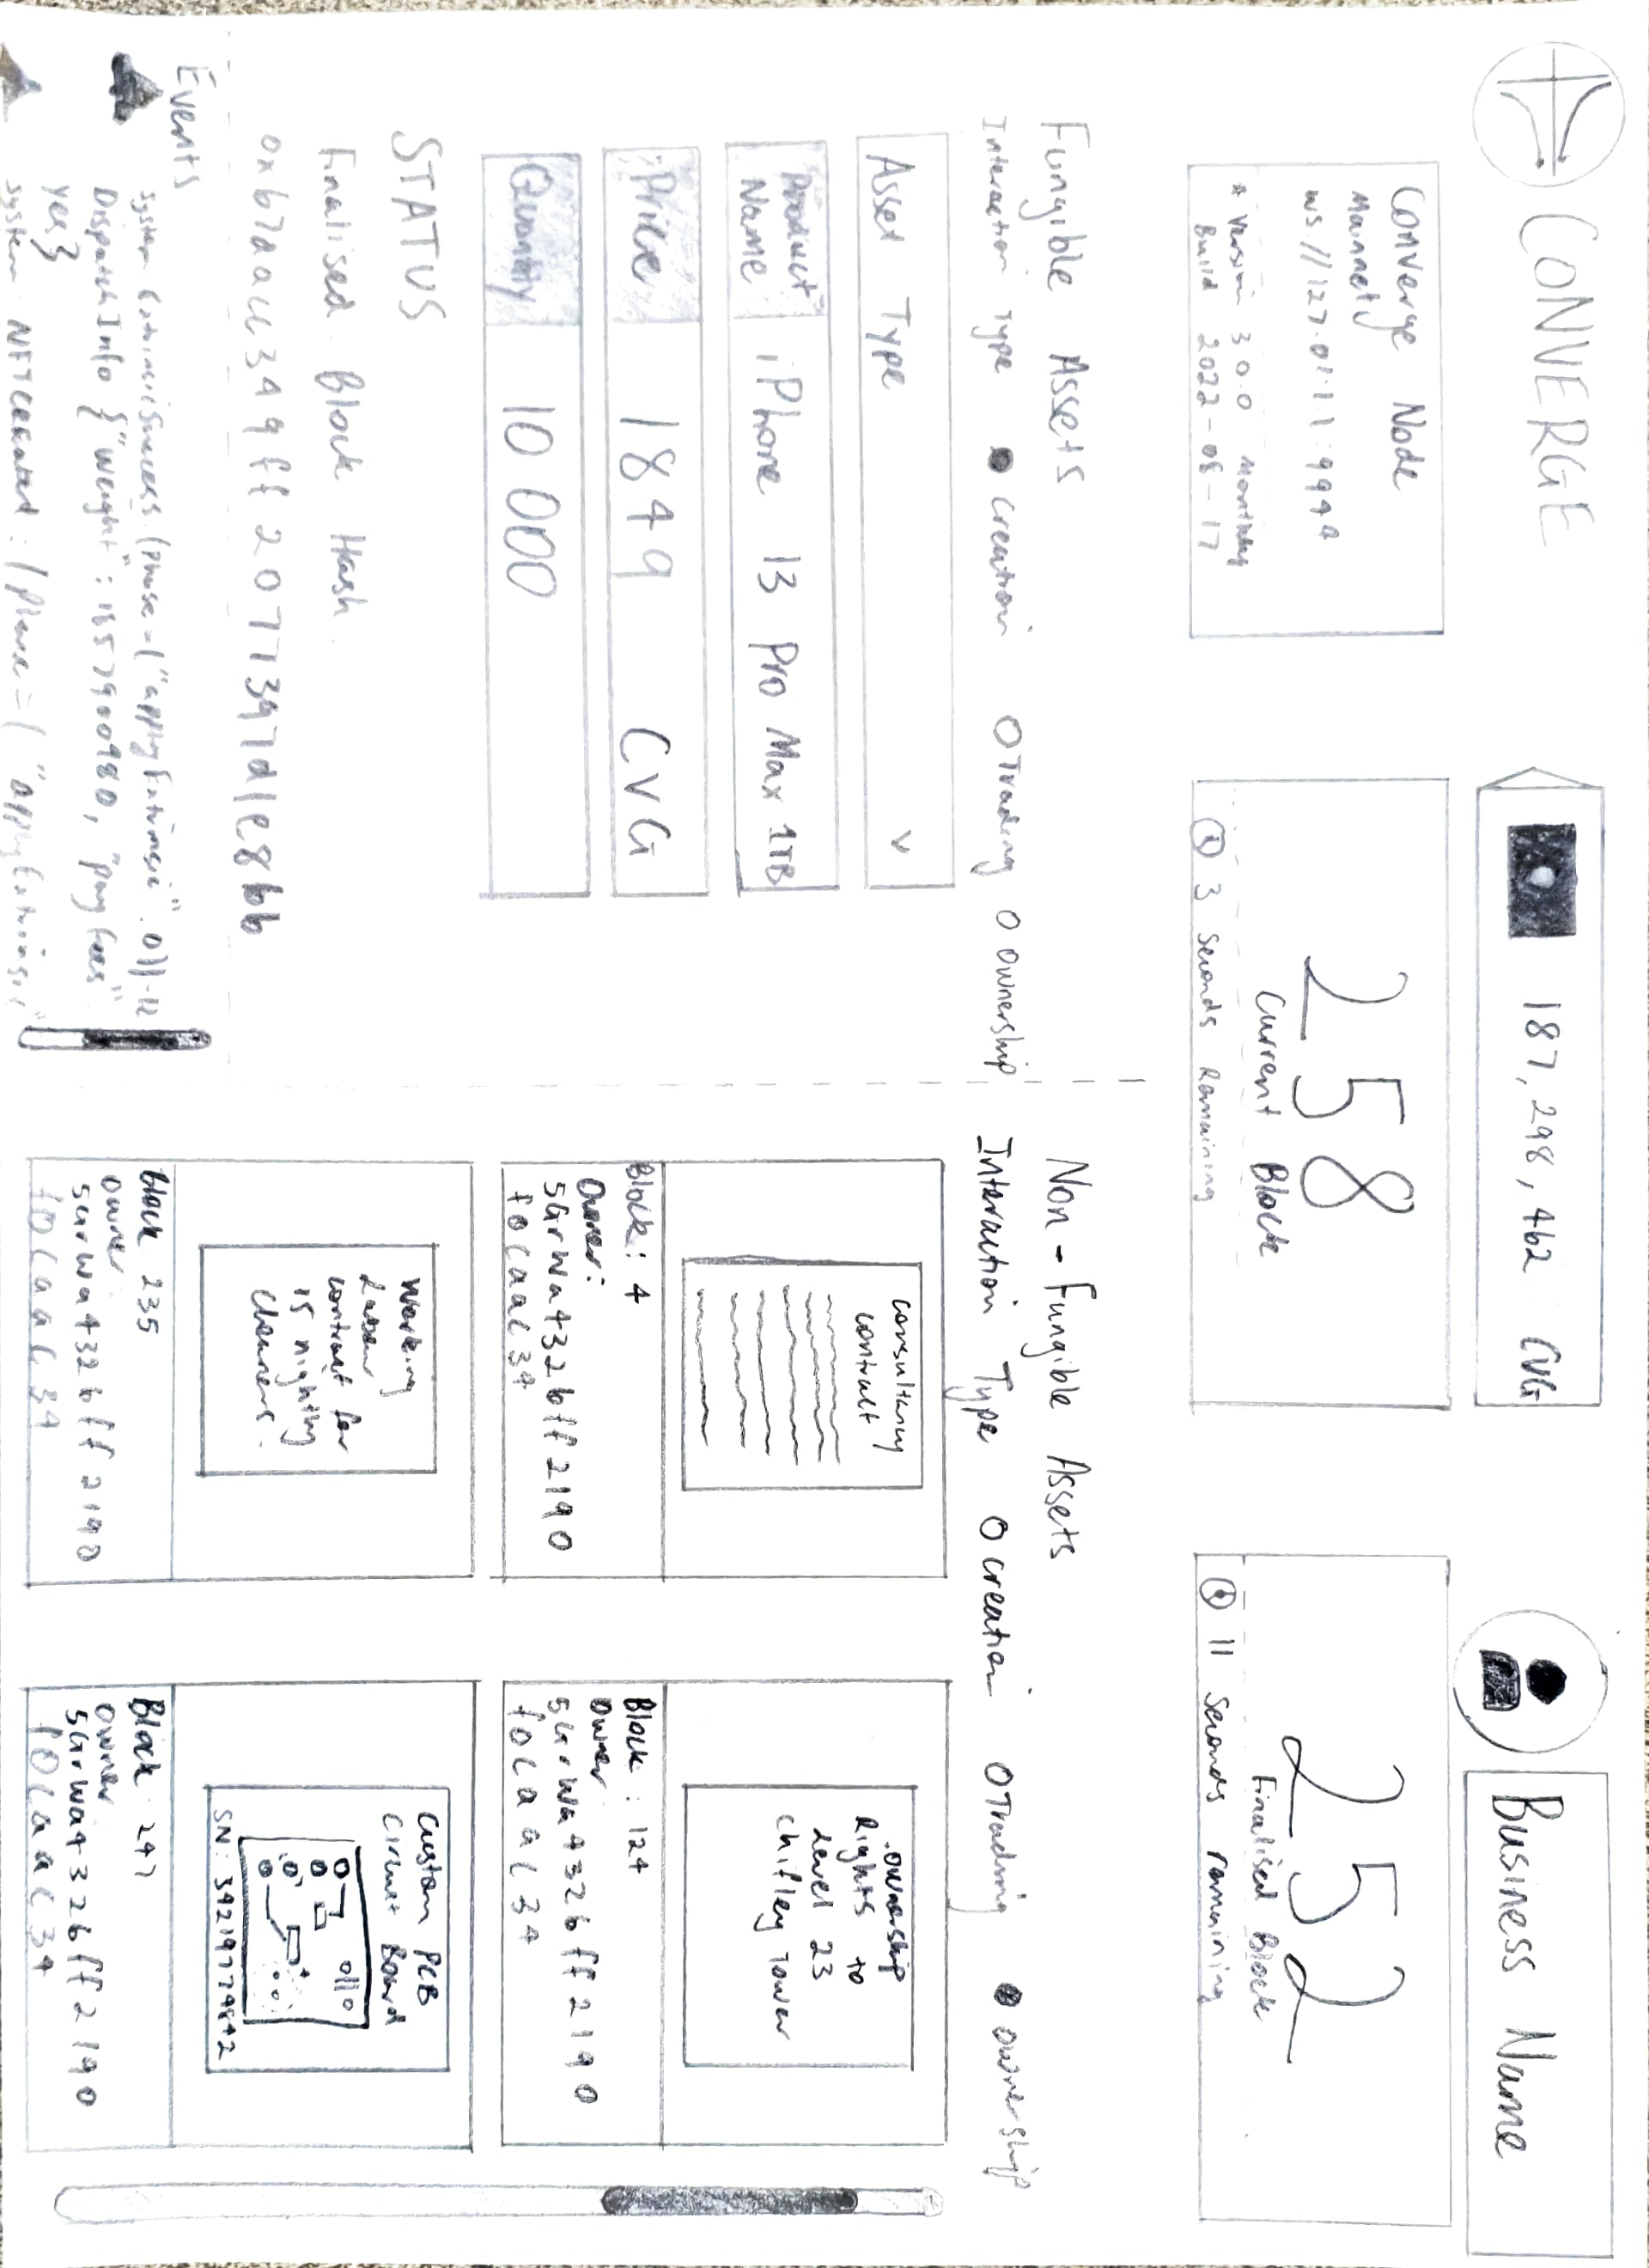 CONVERGE
187,298,462 CVG
Business Name
Converge Node
Mainnet
ws//127.0.1.1:9944
* Version 3.0.0 Monthly
Build 2022-08-17
258
Current Block
3 seconds Remaining
252
Finalised Block
11 seconds remaining
Fungible Assets
Interaction Type creation Trading ownership
Asset Type
Product Name iPhone 13 Pro Max 1TB
Price 1849 CVG
Quantity 10 000
STATUS
Finalised Block Hash
0xb7aacc349ff2077397d1e8bb
Events
DispatchInfo {"weight": "pay fees"
yes}
system NFTCreated:
Non-Fungible Assets
Interaction Type creation Trading ownership
consultancy
contract
Block: 4
Owner:
5Grwa4326ff2190
f0caac34
ownership
Rights to
Level 23
Chifley Tower
Block: 124
Owner
5Grwa4326ff2190
f0caac34
Working
Labour
contract for
15 nightly
cleaners.
Block 235
Owner
5Grwa4326ff2190
f0caac34
Custom PCB
Circuit Board
Block 247
Owner
5Grwa4326ff2190
f0caac34